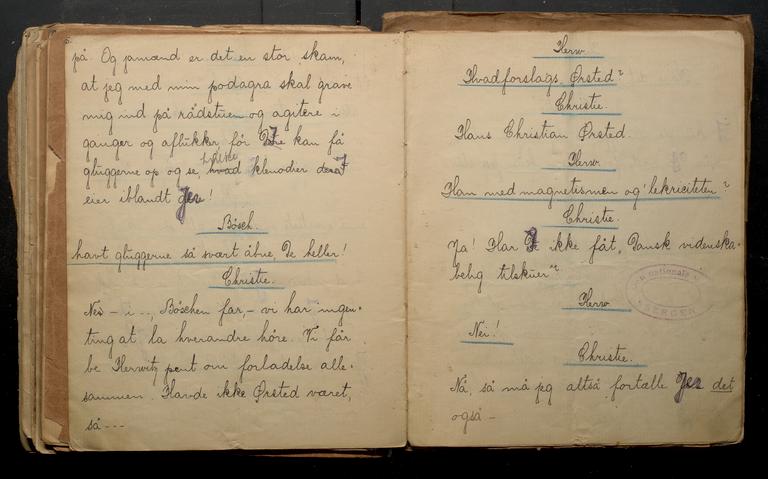 på. Og jamænd er det en stor skam,
at jeg med min podagra skal grave
mig ind på rådstuen og agitere i
ganger og aflukker, før I kan få
hvilke
gluggerne op og se, hvad klenodier I
eier iblandt Jer!
Bösch.
havt gluggerne så svært åbne, De heller!
Christie.
Nei – i .., Böschen far, – vi har ingen-
ting at la hverandre höre. Vi får
be Herwitz pent om forladelse alle-
sammen. Havde ikke Ørsted været,
så ---
Herw.
Hvadforslags Ørsted?
Christie.
Hans Christian Ørsted
Herw.
Han med magnetismen og 'lekriciteten?
Christie.
Ja! Har I ikke fåt „Dansk videnska-
belig tilskuer"?
nationale
BERGEN
Herw.
Nei!
Christie.
Nå, så må jeg altså fortælle Jer det
også –